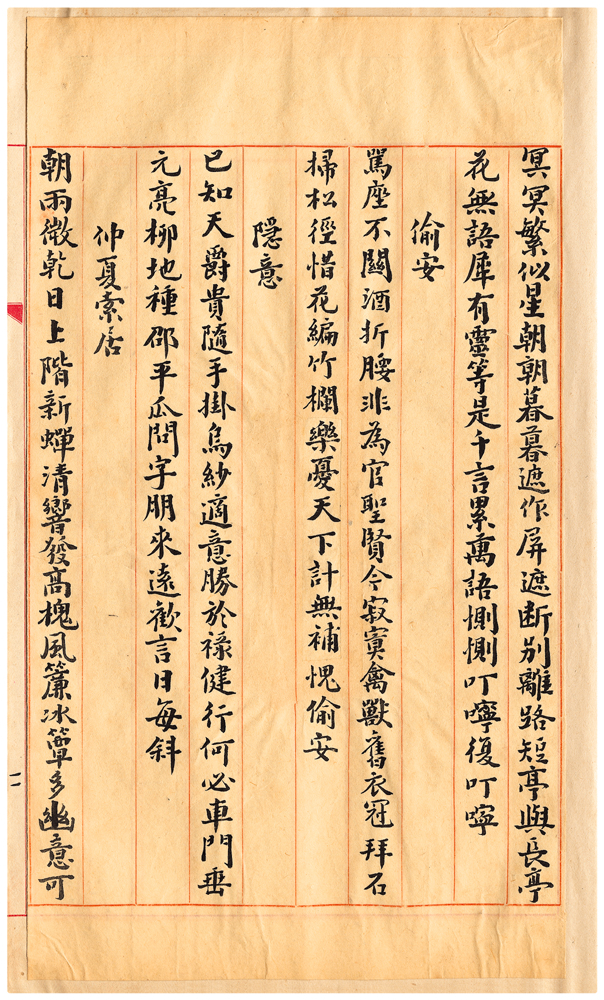 冥冥繁似星朝朝暮暮遮作屏遮断别離路短亭與長亭
花無語犀有靈等是千言累萬語惻惻叮嚀復叮嚀
偷安
罵座不關酒折腰非為官聖賢今寂寞禽獸舊衣冠拜石
掃松徑惜花編竹欄樂憂天下計無補愧偷安
隱意
已知天爵貴隨手掛烏紗適意勝於祿健行何必車門垂
元亮柳地種邵平瓜問字朋來遠歡言日每斜
仲夏索居
朝雨微乾日上階新蟬清響發高槐風簾冰簟多幽意可
二